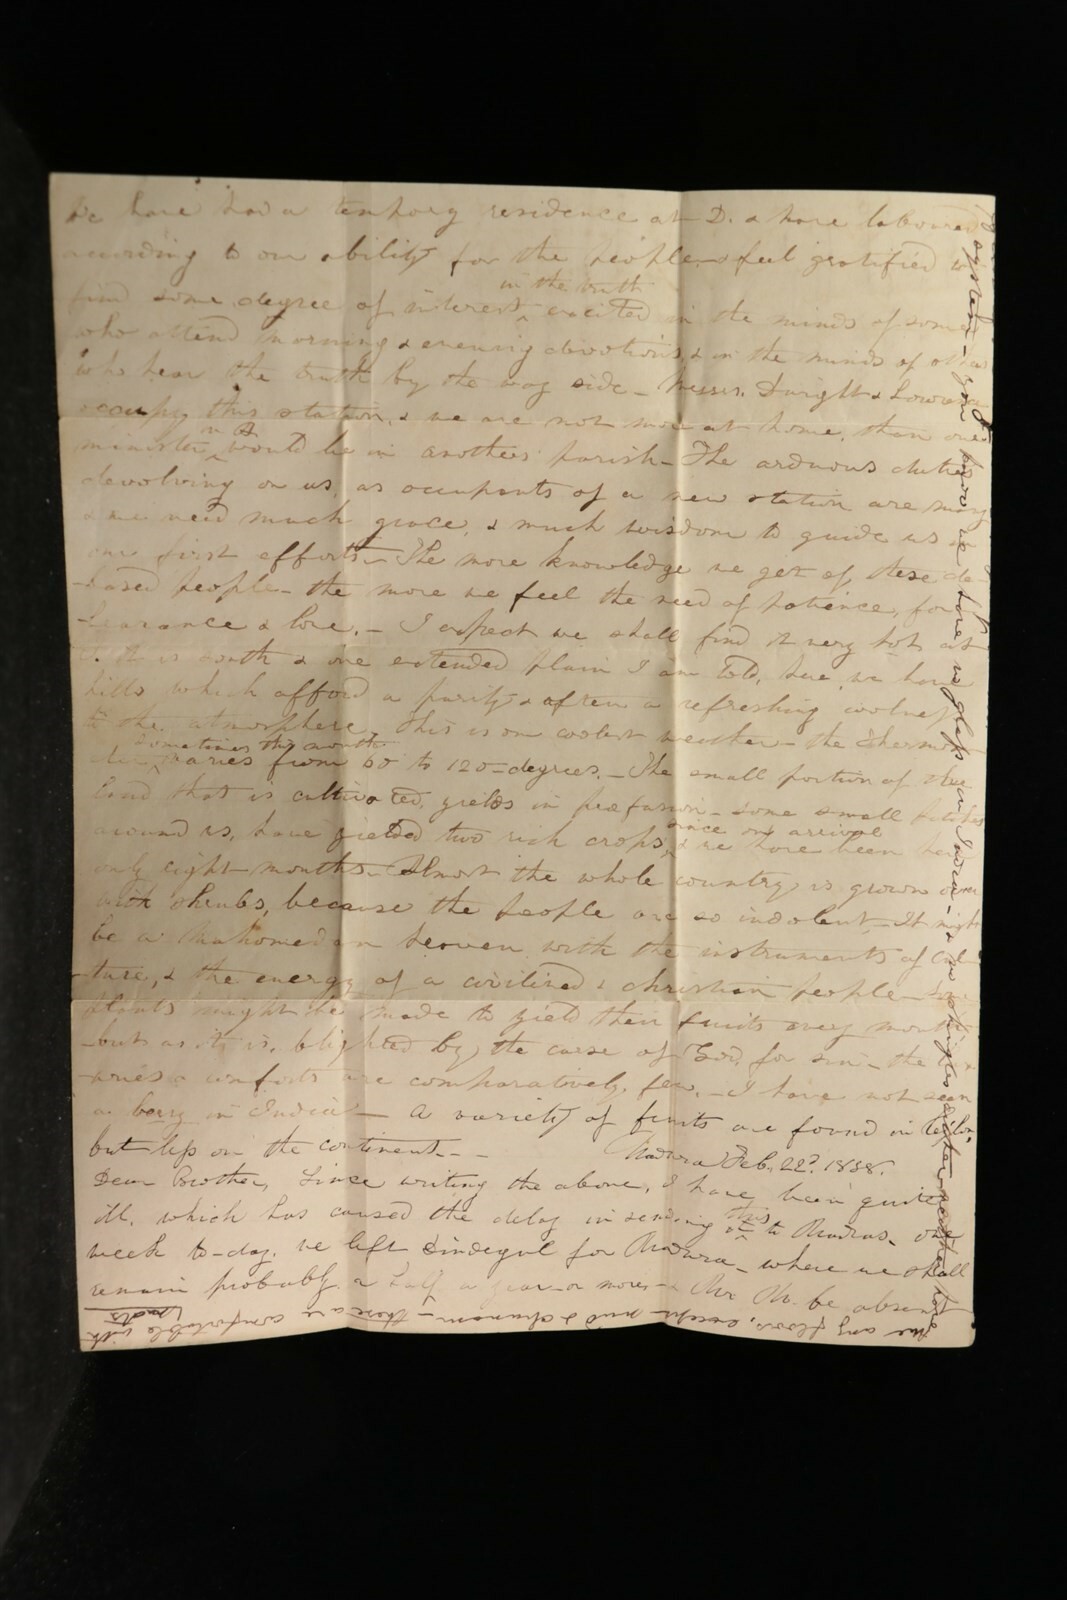 We have had a tempory residence at D. & have laboured
according to our ability for the people & feel gratified to
find some degree of interest in the truth excited in the minds of some
who attend morning & evening devotions, & in the minds of others
who hear the truth by the way side - Messrs. Dwight & Lawrence
occupy this station, & we are not more at home, than one
minister would be in anothers parish - The arduous duties
devolving on us, as occupants of a new station are many
& we need much grace, & much wisdom to guide us in
our first efforts - The more knowledge we get of, these de-
-based people - the more we feel the need of patience, for-
-bearance & love. - I expect we shall find it very hot at
it is south & one extended plain I am told, here, we have
hills which afford a purity & often a refreshing coolness
to the atmosphere. This is our coolest weather - the Thermom-
sometimes this month varies from 60 to 120 - degrees. - The small portion of the
land that is cultivated, yields in profusion - some small patches
around us, have yielded two rich crops, since our arrival & we have been here
only eight months. Almost the whole country is grown over
with shrubs, because the people are so indolent, - It might
be a Mahomedan heaven with the instruments of cul-
-ture, & the energy of a civilized & christian people -
plants might be made to yield their fruits every month
-but as it is, blighted by the curse of God, for sin - the
comforts are comparatively, few, - I have not seen
a berry in India - A variety of fruits are found in Ceylon,
but less on the continent. -
Madura Feb. 22d. 1838.
Dear Brother, Since writing the above, I have been quite
ill, which has caused the delay in sending this to Madras. One
week to-day, we left Dindegul for Madura - where we shall
remain probably a half a year or more - & Mr. M. be absent
system - you know we have no glass in India - &
floors, mud & chunam - these are comfortable with
mats